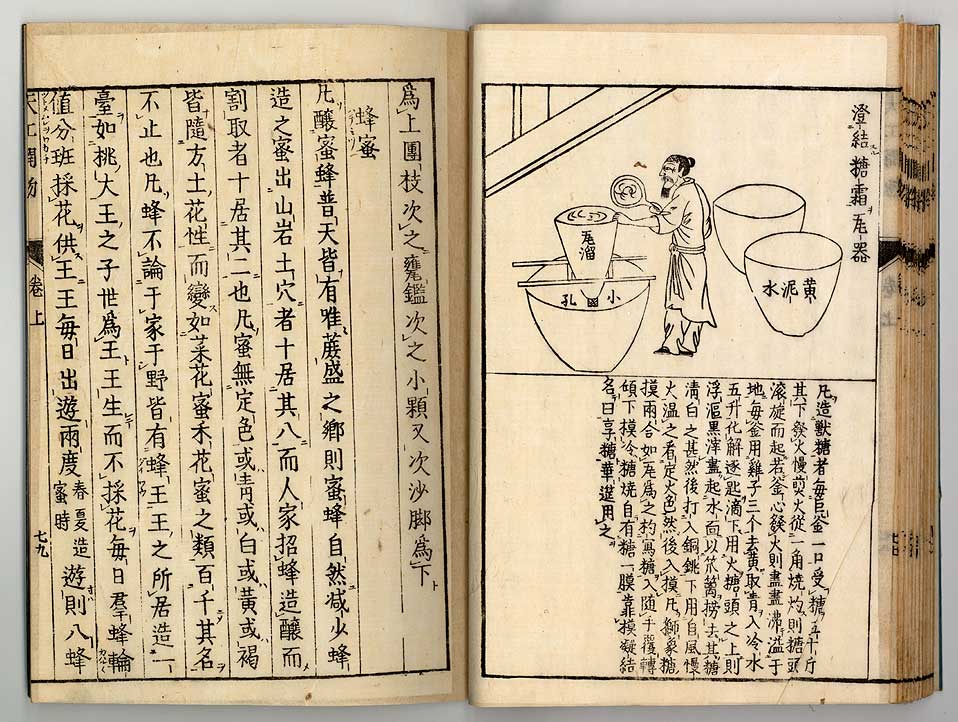 澄結糖霜瓦器
黄泥水
瓦溜
小孔
凡造獸糖者每巨釜一口受糖五十斤
其下發火慢煎火從一角燒灼則糖頭
滚旋而起若釜心發火則盡盡沸溢于
地每釜用雞子三个去黄取青入冷水
五升化解逐匙滴下用火糖頭之上則
浮漚黑滓盡起水面以笊篱撈去其糖
清白之甚然後打入銅銚下用自風慢
火温之看定火色然後入摸凡獅象糖
摸兩合如瓦爲之杓寫糖入随手覆轉
傾下模冷糖燒自有糖一膜靠模凝結
名曰享糖華筵用之
爲上團枝次之甕鑑次之小顆又次沙脚爲下
蜂蜜
凡釀蜜蜂普天皆有唯蔗盛之鄉則蜜蜂自然减少蜂
造之蜜出山岩土穴者十居其八而人家招蜂造釀而
割取者十居其二也凡蜜無定色或青或白或黄或褐
皆隨方土花性而變如菜花蜜禾花蜜之類百千其名
不止也凡蜂不論于家于野皆有蜂王王之所居造一
臺如挑大王之子世爲王王生而不採花每日羣蜂輪
值分班採花供王王每日出遊兩度春夏造蜜時遊則八蜂
天工開物 卷上 七九